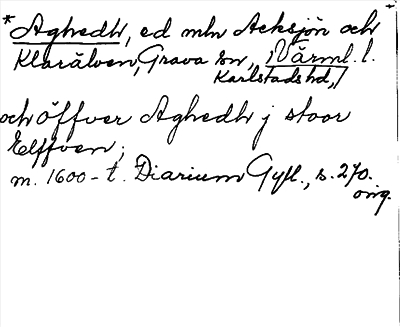 *Aghedh, ed mln Acksjön och
Klarälven, Grava sn, Värml. l.
Karlstads hd,
och öffver Aghedh j stoor
Elffven;
m. 1600-t. Diarium Gyll., s. 270.
orig.